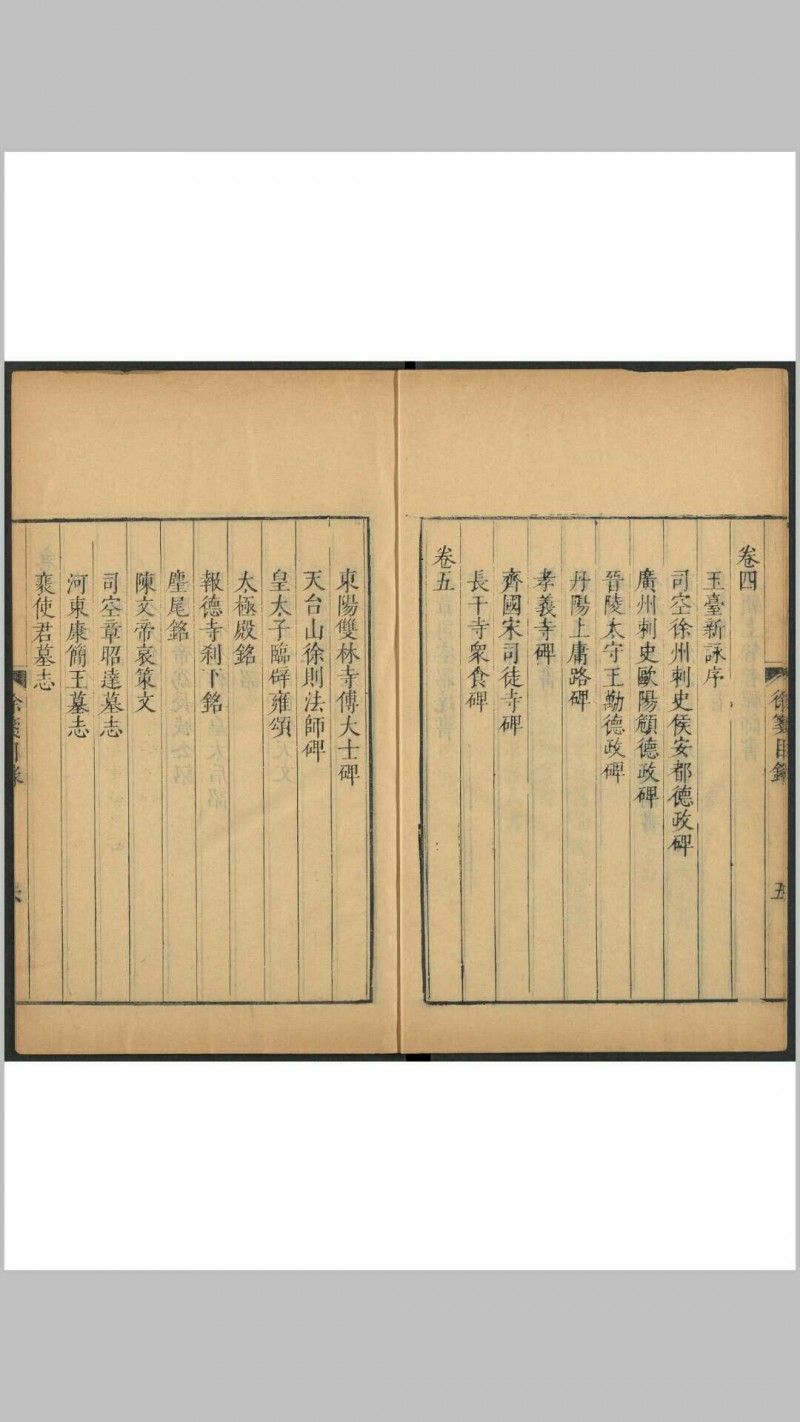 徐箋目錄
五
卷四
玉臺新詠序
司空徐州刺史侯安都德政碑
廣州刺史歐陽頠德政碑
晉陵太守王勱德政碑
丹陽上庸路碑
孝義寺碑
齊國宋司徒寺碑
卷五
長干寺衆食碑
東陽雙林寺傅大士碑
天台山徐則法師碑
皇太子臨辟雍頌
太極殿銘
報德寺刹下銘
麈尾銘
陳文帝哀策文
司空章昭達墓志
河東康簡王墓志
裴使君墓志